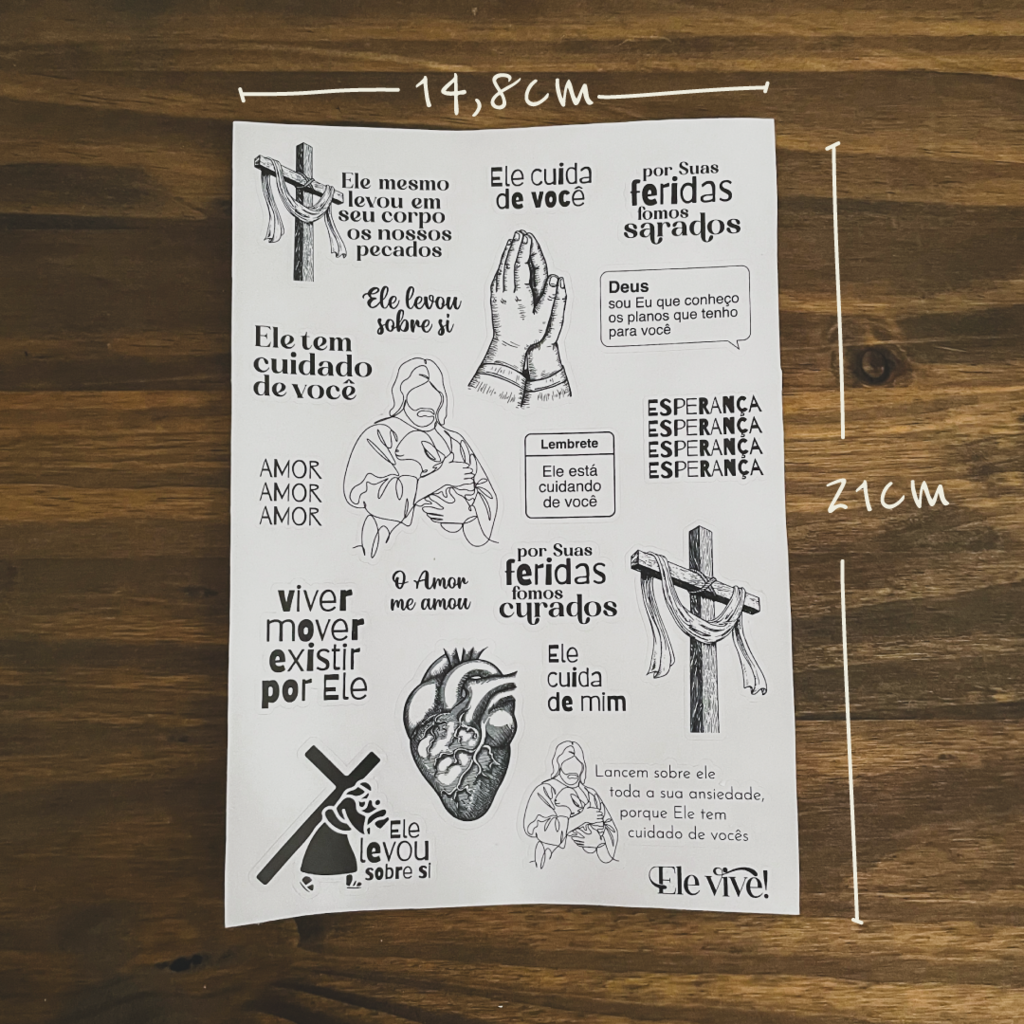 14,8cm
Ele mesmo
levou em
seu corpo
os nossos
pecados
Ele cuida
de você
por Suas
feridas
fomos
sarados
Ele levou
sobre si
Deus
sou Eu que conheço
os planos que tenho
para você
Ele tem
cuidado
de você
ESPERANÇA
ESPERANÇA
ESPERANÇA
ESPERANÇA
Lembrete
Ele está
cuidando
de você
AMOR
AMOR
AMOR
21cm
por Suas
feridas
fomos
curados
O Amor
me amou
viver
mover
existir
por Ele
Ele
cuida
de mim
Lancem sobre ele
toda a sua ansiedade,
porque Ele tem
cuidado de vocês
Ele
levou
sobre si
Ele vive!